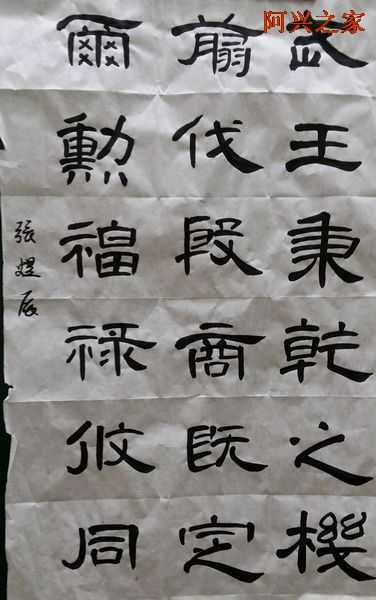 阿兴之家
武王秉乾之機
翦伐殷商既定
爾勳福禄攸同
張辰